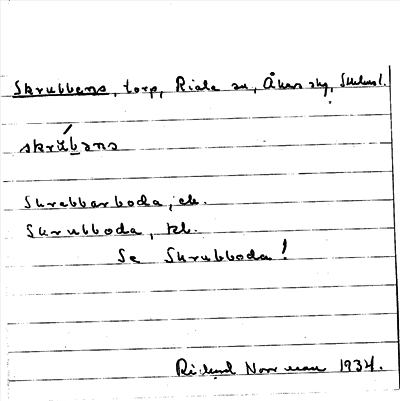 Skrubbens, torp, Riala sn, Åkers skg, Sthlms l.
skrúbəns
Skrabbarboda, ek.
Skrubboda, kl.
Se Skrubboda!
Rickard Norrman 1934.